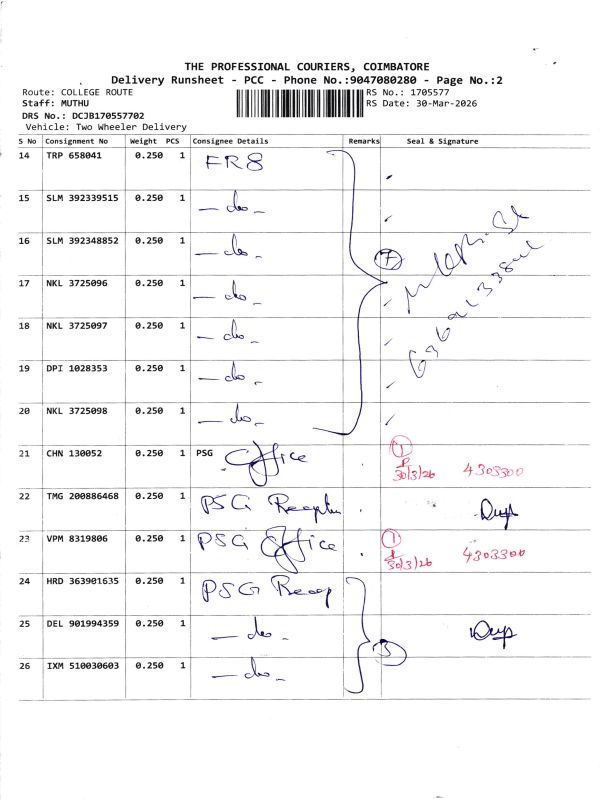 THE PROFESSIONAL COURIERS, COIMBATORE
Delivery Runsheet - PCC - Phone No.:9047080280 - Page No.:2
Route: COLLEGE ROUTE
RS No.: 1705577
Staff: MUTHU
RS Date: 30-Mar-2026
DRS No.: DCJB170557702
Vehicle: Two Wheeler Delivery
S No Consignment No Weight PCS Consignee Details Remarks Seal & Signature
14 TRP 658041 0.250 1 FR8
15 SLM 392339515 0.250 1 — do —
16 SLM 392348852 0.250 1 — do — 7
17 NKL 3725096 0.250 1 — do —
18 NKL 3725097 0.250 1 — do —
19 DPI 1028353 0.250 1 — do —
20 NKL 3725098 0.250 1 — do —
21 CHN 130052 0.250 1 PSG Office 1 30/3/26 4303300
22 TMG 200886468 0.250 1 PSG
23 VPM 8319806 0.250 1 PSG Office 1 30/3/26 4303300
24 HRD 363901635 0.250 1 PSG Recep
25 DEL 901994359 0.250 1 — do — 3
26 IXM 510030603 0.250 1 — do —